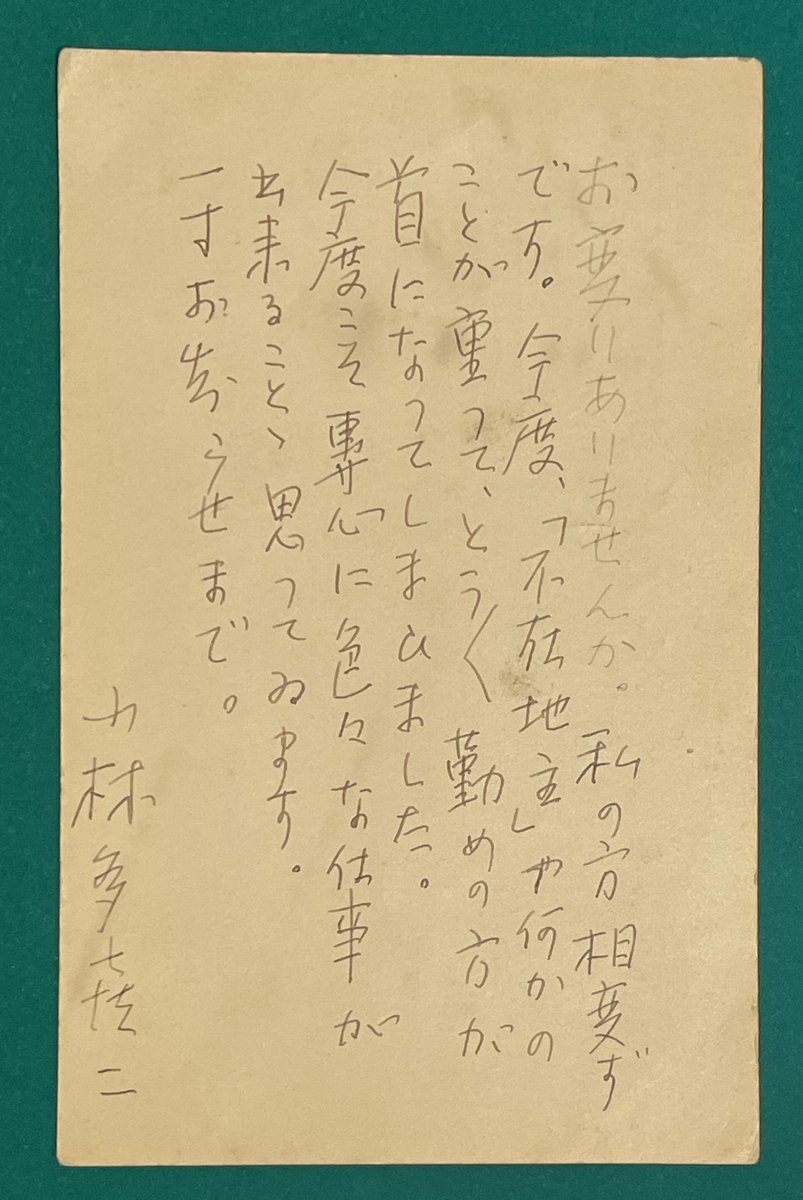 お変りありませんか。私の方相変ず
です。今度、「不在地主」や何かの
ことが重って、とう〱勤めの方が
首になってしまひました。
今度こそ専心に色々な仕事が
出来ること、思ってゐます。
一寸お知らせまで。
小林多喜二